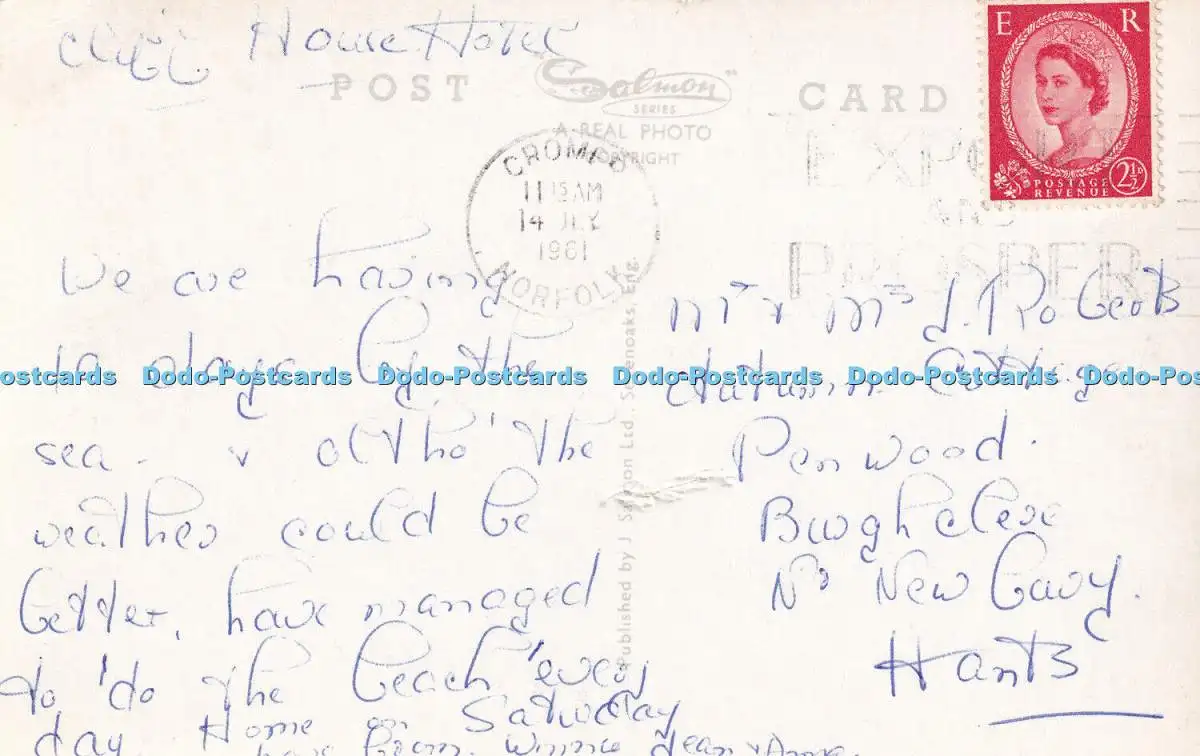 Cliff House Hotel
POST CARD
Salmon
SERIES
A REAL PHOTO
COPYRIGHT
E R
POSTAGE
REVENUE
2½D
CROMER
11 15 AM
14 JLY
1961
NORFOLK
EXPORT
AND
PROSPER
We are having
10 days by the
sea. & altho' the
weather could be
better, have managed
to 'do the beach' every
day. Home on Saturday
Winnie Jean & Anne.
Published by J Salmon Ltd., Sevenoaks Eng.
Mr & Mrs J. Roberts
Autumn Cottage
Penwood.
Burghclere
Nr Newbury.
Hants
ostcards Dodo-Postcards Dodo-Postcards Dodo-Postcards Dodo-Postcards Dodo-Pos